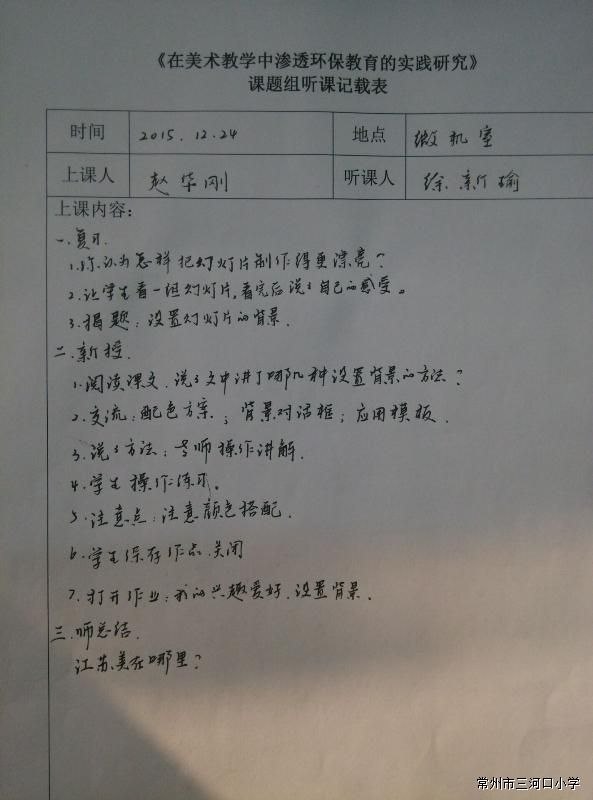 《在美术教学中渗透环保教育的实践研究》
课题组听课记载表
时间 2015.12.24 地点 微机室
上课人 赵华刚 听课人 徐新瑜
上课内容:
一.复习.
1.你认为怎样把幻灯片制作得更漂亮?
2.让学生看一组幻灯片,看完后说说自己的感受。
3.揭题:设置幻灯片的背景.
二.新授.
1.阅读课文.说说文中讲了哪几种设置背景的方法?
2.交流:配色方案;背景对话框;应用模板.
3.说说方法:老师操作讲解.
4.学生操作练习。
5.注意点:注意颜色搭配.
6.学生保存作品.关闭
7.打开作业:我的兴趣爱好.设置背景.
三.师总结.
江苏美在哪里?
常州市三河口小学